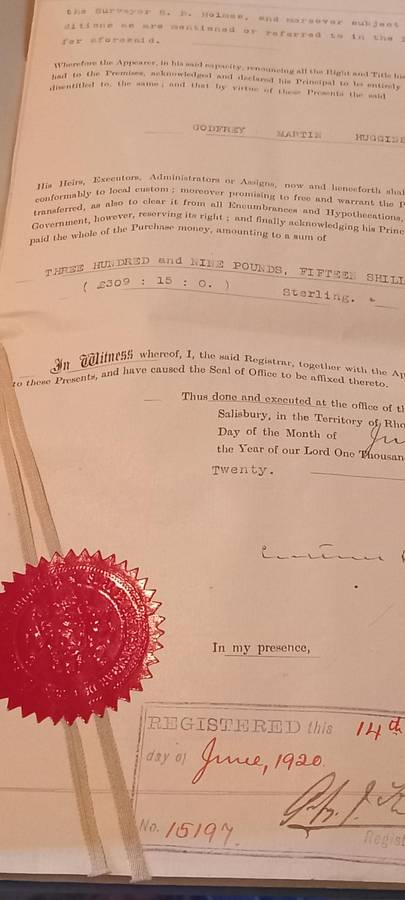 the Surveyor S. B. Holmes, and moreover subject
ditions as are mentioned or referred to in the
for aforesaid.
Wherefore the Appearer, in his said capacity, renouncing all the Right and Title his
had to the Premises, acknowledged and declared his Principal to be entirely
disentitled to, the same ; and that by virtue of these Presents the said
GODFREY MARTIN HUGGINS
His Heirs, Executors, Administrators or Assigns, now and henceforth shal
conformably to local custom ; moreover promising to free and warrant the P
transferred, as also to clear it from all Encumbrances and Hypothecations,
Government, however, reserving its right ; and finally acknowledging his Princ
paid the whole of the Purchase money, amounting to a sum of
THREE HUNDRED and NINE POUNDS, FIFTEEN SHILL
( £309 : 15 : 0. ) Sterling.
In Witness whereof, I, the said Registrar, together with the Ap
to these Presents, and have caused the Seal of Office to be affixed thereto.
Thus done and executed at the office of th
Salisbury, in the Territory of Rho
Day of the Month of Ju
the Year of our Lord One Thousan
Twenty.
In my presence,
REGISTERED this 14th
day of June, 1920.
No. 15197.
Regist